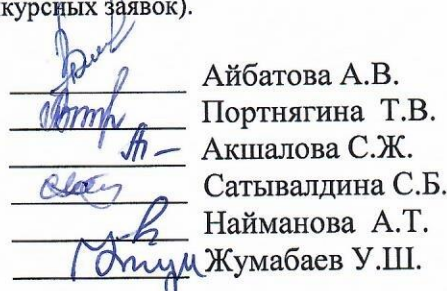 курсных заявок).
Айбатова А.В.
Портнягина Т.В.
Акшалова С.Ж.
Сатывалдина С.Б.
Найманова А.Т.
Жумабаев У.Ш.